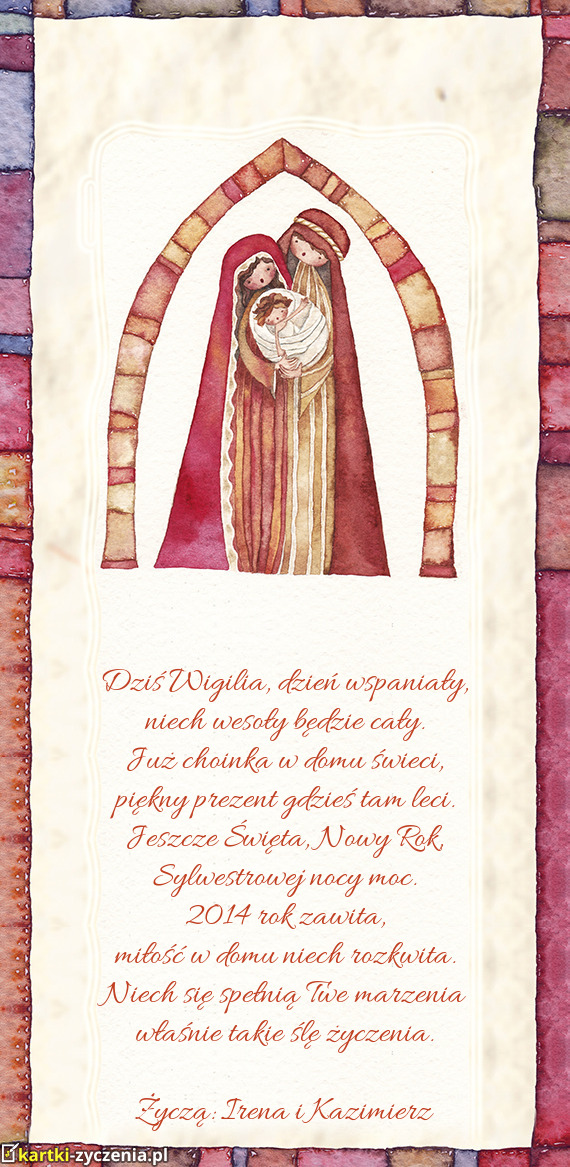 Dziś Wigilia, dzień wspaniały,
niech wesoły będzie cały.
Już choinka w domu świeci,
piękny prezent gdzieś tam leci.
Jeszcze Święta, Nowy Rok,
Sylwestrowej nocy moc.
2014 rok zawita,
miłość w domu niech rozkwita.
Niech się spełnią Twe marzenia
właśnie takie ślę życzenia.
Życzą: Irena i Kazimierz
kartki-zyczenia.pl